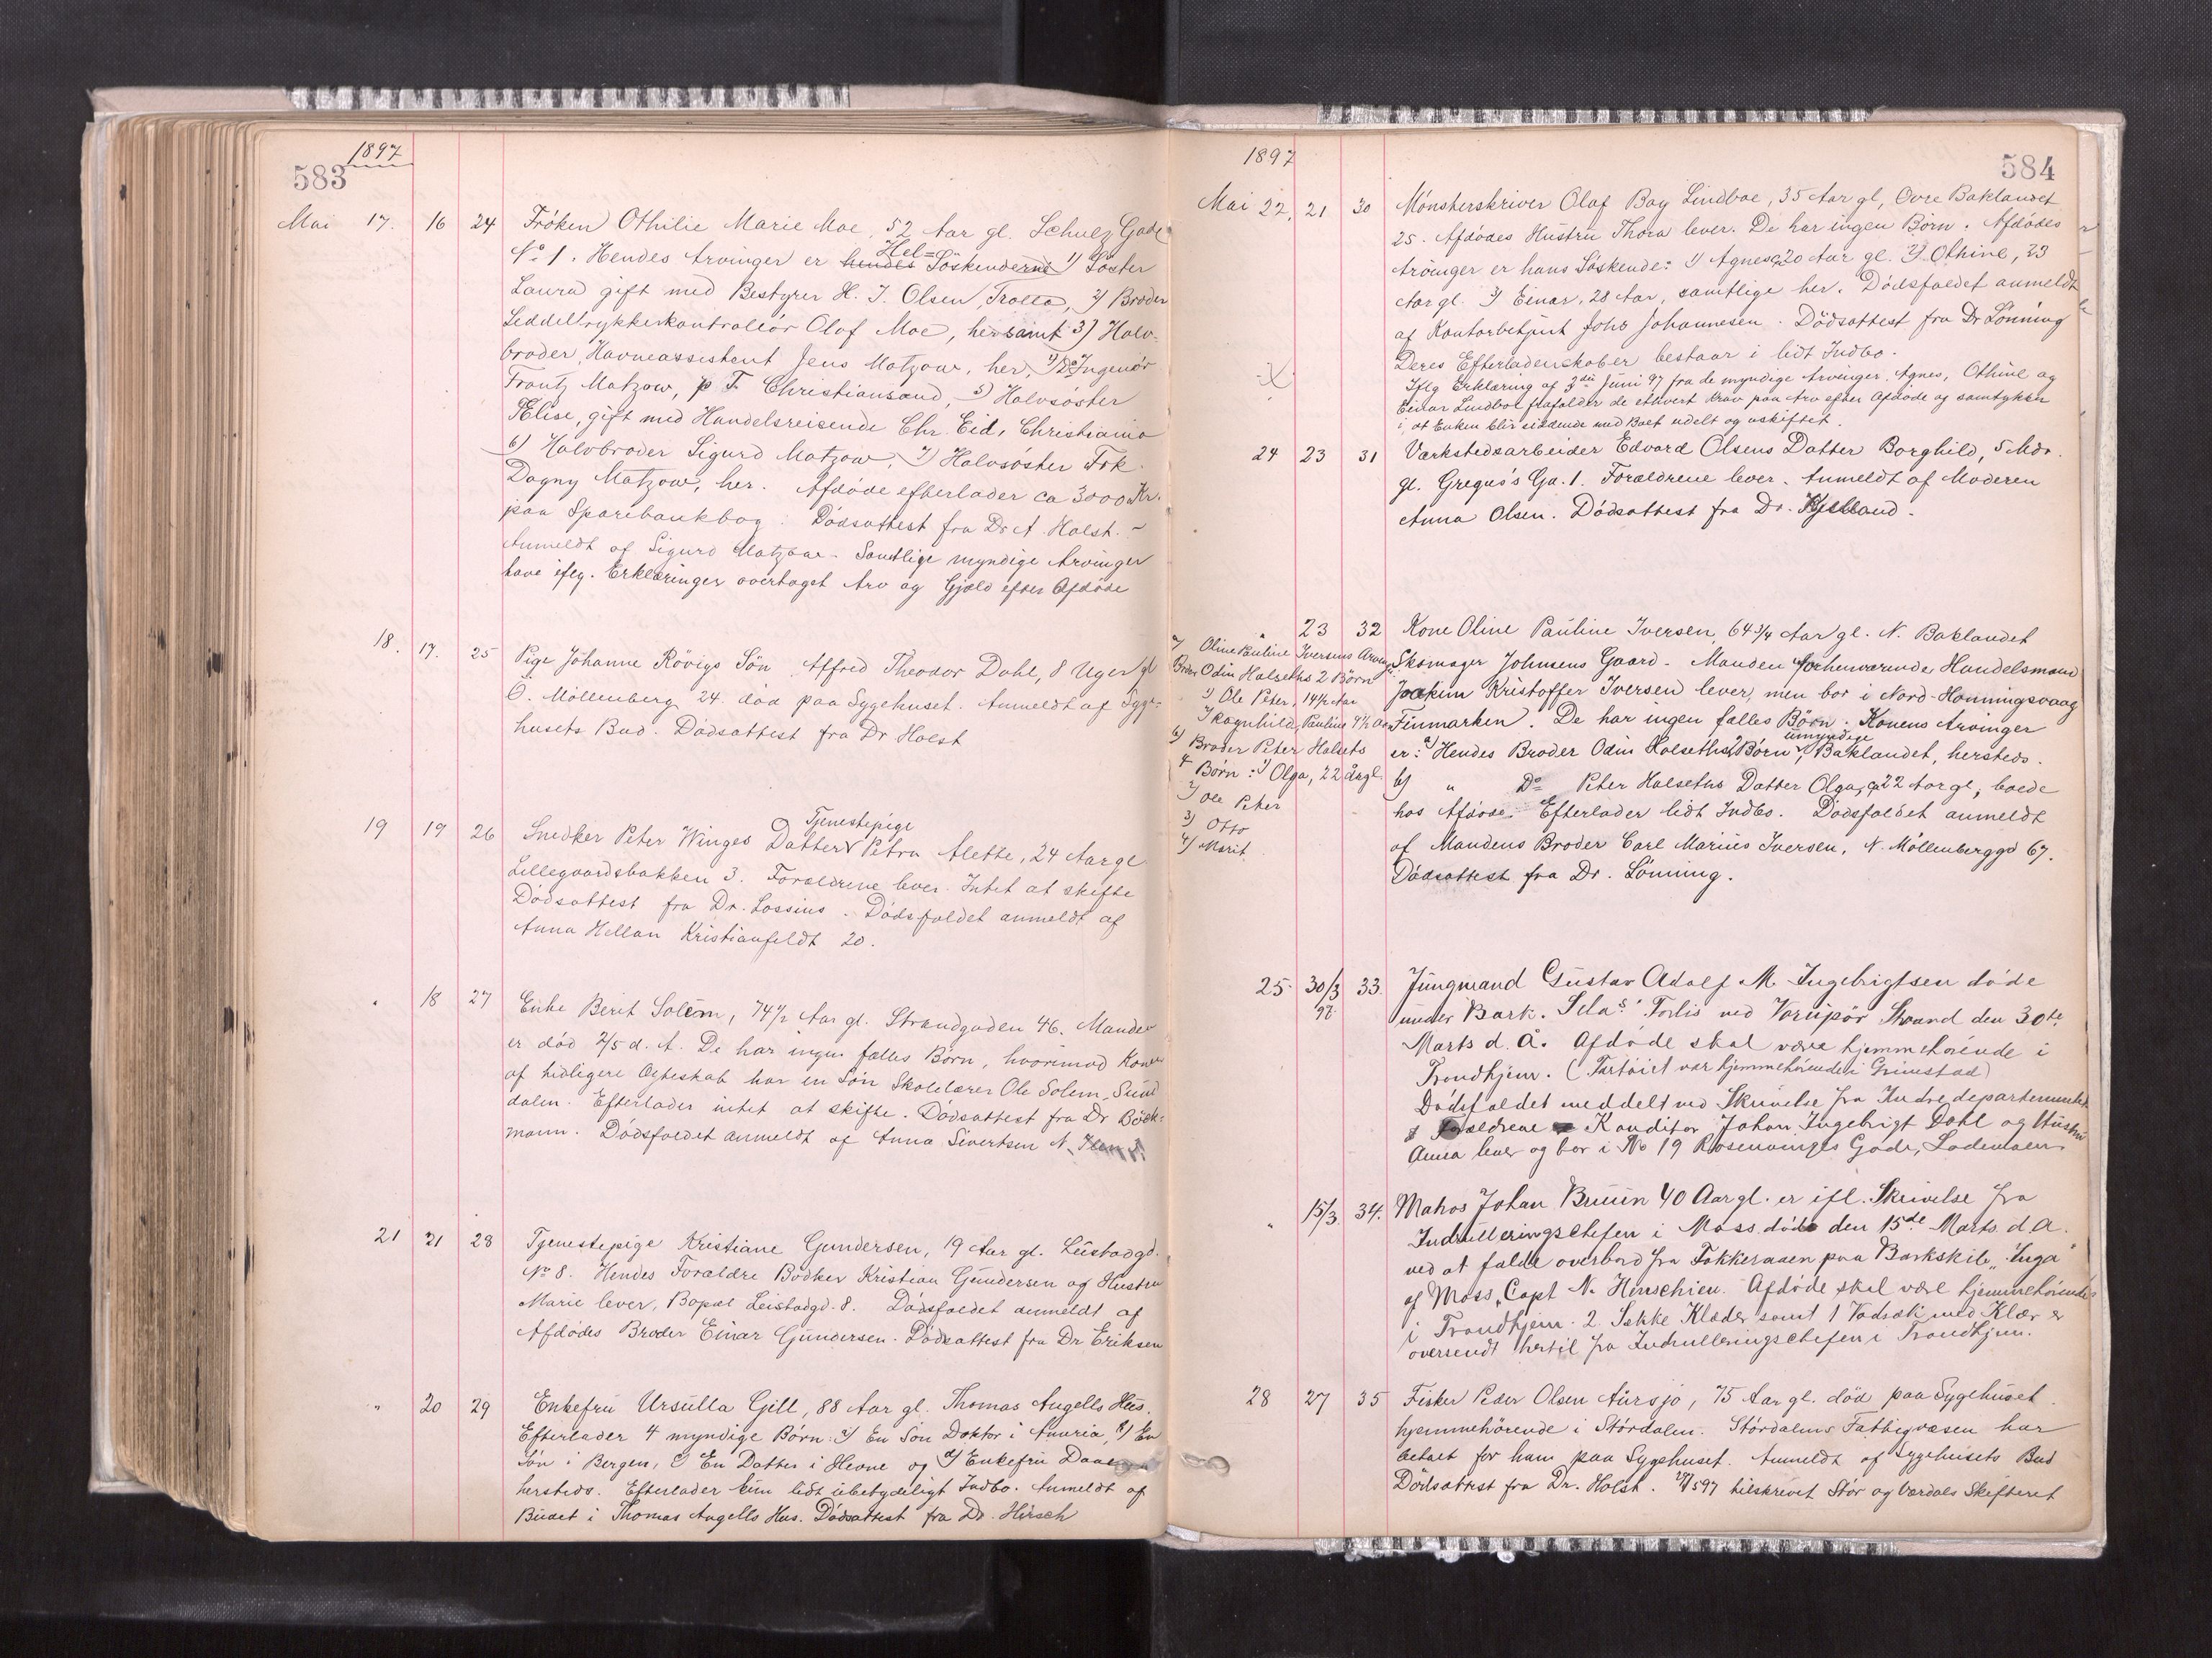 1897
583
Mai 17. 16 24 Fröken Othilie Marie Moe, 52 Aar gl. Schulz Gade
No 1. Hendes Arvinger er hendes Hel= Söskenderne 1) Söster
Laura gift med Bestyrer H. J. Olsen, Trolla, 2) Broder
Seddeltrykkerkontrollör Olof Moe, her samt 3) Halv-
broder, Havneassistent Jens Matzow, her, 4) Do Ingenör
Frantz Matzow, p T. Christiansand, 5) Halvsöster
Elise, gift med Handelsreisende Chr. Eid, Christiania
6) Halvbroder Sigurd Matzow, 7) Halvsöster Frk.
Dagny Matzow, her. Afdöde efterlader ca 3000 Kr.
paa Sparebankbog. Dödsattest fra Dr A. Holst. -
Anmeldt af Sigurd Matzow. Samtlige myndige Arvinger
have iflg. Erklæringer overtaget Arv og Gjæld efter Afdöde
18. 17. 25 Pige Johanne Rövigs Sön Alfred Theodor Dahl, 8 Uger gl
Ö. Möllenberg 24. död paa Sygehuset. Anmeldt af Syge-
husets Bud. Dödsattest fra Dr Holst
19 19 26 Snedker Peter Winges Datter Tjenestepige Petra Alette, 24 Aar gl
Lillegaardsbakken 3. Forældrene lever. Intet at skifte
Dödsattest fra Dr. Lossius. Dödsfaldet anmeldt af
Anna Hellan Kristianfeldt 20.
" 18 27 Enke Berit Solem, 74 1/2 Aar gl. Strandgaden 46. Manden
er död 2/5 d. A. De har ingen fælles Börn, hvorimod Konen
af tidligere Ægteskab har en Sön Skolelærer Ole Solem, Sund
dalen. Efterlader intet at skifte. Dödsattest fra Dr Böck-
mann. Dödsfaldet anmeldt af Anna Sivertsen N.
21 21 28 Tjenestepige Kristiane Gundersen, 19 Aar gl. Leistadgd.
No 8. Hendes Forældre Bödker Kristian Gundersen og Hustru
Marie lever, Bopæl Leistadgd. 8. Dödsfaldet anmeldt af
Afdödes Broder Einar Gundersen. Dödsattest fra Dr Eriksen
" 20 29 Enkefru Ursulla Gill, 88 Aar gl. Thomas Angells Hus.
Efterlader 4 myndige Börn: a) En Sön Doktor i Ameria, b) En
Sön i Bergen, c) En Datter i Hevne og d) Enkefru Daae
hersteds. Efterlader kun lidt ubetydeligt Indbo. Anmeldt af
Budet i Thomas Angells Hus. Dödsattest fra Dr. Hirsch
1897
584
Mai 22. 21 30 Mönsterskriver Olaf Bay Lindboe, 35 Aar gl, Ovre Baklandet
25. Afdödes Hustru Thora lever. De har ingen Börn. Afdödes
Arvinger er hans Söskende: 1) Agnes, 20 Aar gl. 2) Othine, 23
Aar gl. 3) Einar, 28 Aar, samtlige her. Dödsfaldet anmeldt
af Kontorbetjent Johs Johannesen. Dödsattest fra Dr Lönning
Deres Efterladenskaber bestaar i lidt Indbo.
Iflg Erklæring af 3die Juni 97 fra de myndige Arvinger, Agnes, Othine og
Einar Lindboe frafalder de ethvert krav paa Arv efter Afdöde og samtykker
i at Enken blir siddende med Boet udelt og uskiftet.
24 23 31 Værkstedsarbeider Edvard Olsens Datter Borghild, 5 Mdr.
gl. Gregus's Ga. 1. Forældrene lever. Anmeldt af Moderen
Anna Olsen. Dödsattest fra Dr. Kjelland.
" 23 32 Kone Oline Pauline Iversen, 64 3/4 Aar gl. N. Baklandet
Skomager Johnsens Gaard. Manden forhenværende Handelsmand
Joakim Kristoffer Iversen lever, men bor i Nord-Honningsvaag
Finmarken. De har ingen fælles Börn. Konens Arvinger
er: a) Hendes Broder Odin Halseths 2 umyndige Börn, Baklandet, hersteds.
b) " Do Peter Halseths Datter Olga, ca 22 Aar gl, boede
hos Afdöde. Efterlader lidt Indbo. Dödsfaldet anmeldt
af Mandens Broder Carl Marius Iversen, N. Möllenberggd 67.
Dödsattest fra Dr. Lönning.
a) Oline Pauline Iversens Arving:
Broder Odin Halseths 2 Börn
1) Ole Peter, 14 1/2 Aar
2) Ragnhild Pauline 7 1/2 Aar
b) Broder Peter Halsets
4 Börn: 1) Olga, 22 år gl.
2) Ole Peter
3) Otto
4) Marit
25. 30/3 97 33. Jungmand Gustav Adolf M. Ingebrigtsen döde
under Bark. Selas' Forlis ved Vorupör Strand den 30te
Marts d. A. Afdöde skal være hjemmehörende i
Trondhjem. (Fartöiet var hjemmehörende i Grimstad)
Dödsfaldet meddelt ved Skrivelse fra Indredepartementet
Forældrene Konditor Johan Ingebrigt Dahl og Hustru
Anna lever og bor i No 19 Rosenvinges Gade, Lademoen
" 15/3. 34. Matros Johan Bruun 40 Aar gl. er ifl. Skrivelse fra
Indrulleringschefen i Moss död den 15de Marts d. A.
ved at falde overbord fra Fokkeraaen paa Barkskib "Inga"
af Moss, Capt N. Hinschien. Afdöde skal være hjemmehörende
i Trondhjem. 2 Sække Klæder samt 1 Vadsæk med Klær er
oversendt hertil fra Indrulleringschefen i Trondhjem.
28 27 35 Fisker Peder Olsen Aursjo, 75 Aar gl. död paa Sygehuset.
hjemmehörende i Stördalen. Stördalens Fattigvæsen har
betalt for ham paa Sygehuset. Anmeldt af Sygehusets Bud
Dödsattest fra Dr. Holst. 28/5 97 tilskrevet Stör og Værdals Skifteret